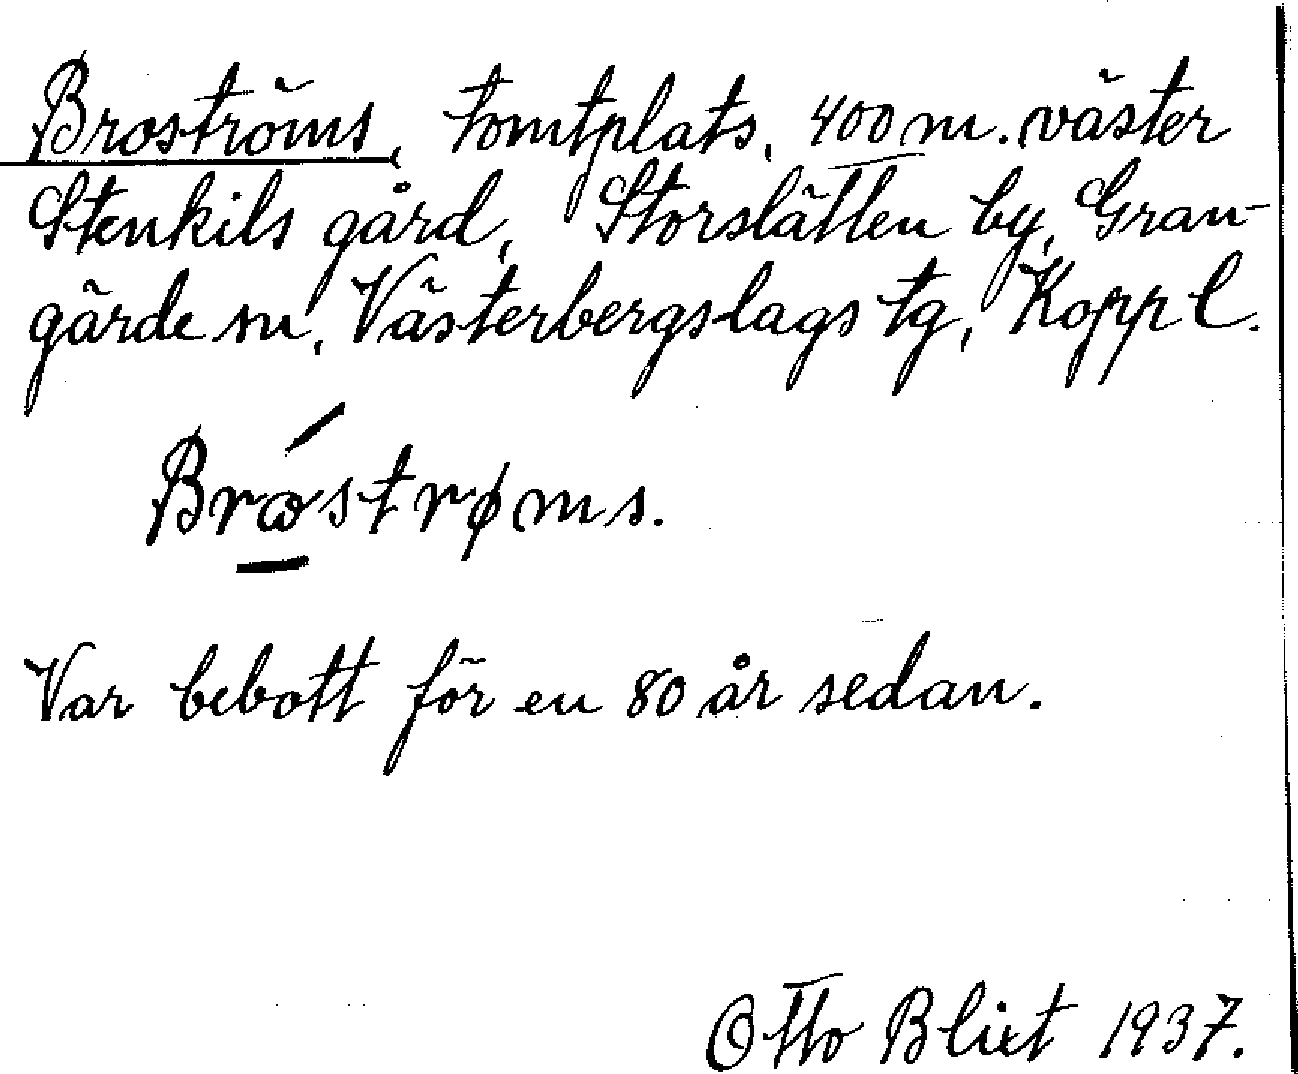 Broströms, tomtplats, 400 m. väster
Stenkils gård, Storslätten by, Gran-
gärde sn, Västerbergslags tg, Kopp l.
Brωströms.
Var bebott för en 80 år sedan.
Otto Blixt 1937.